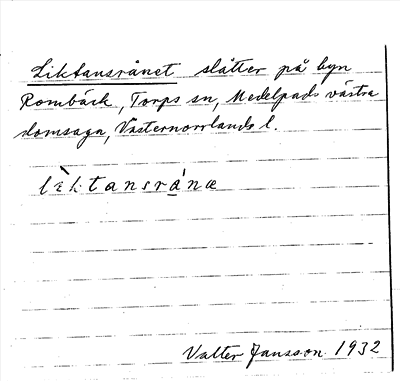 Liktansrånet slåtter på byn
Rombäck, Torps sn, Medelpads västra
domsaga, Västernorrlands l.
lìktansránæ
Valter Jansson 1932